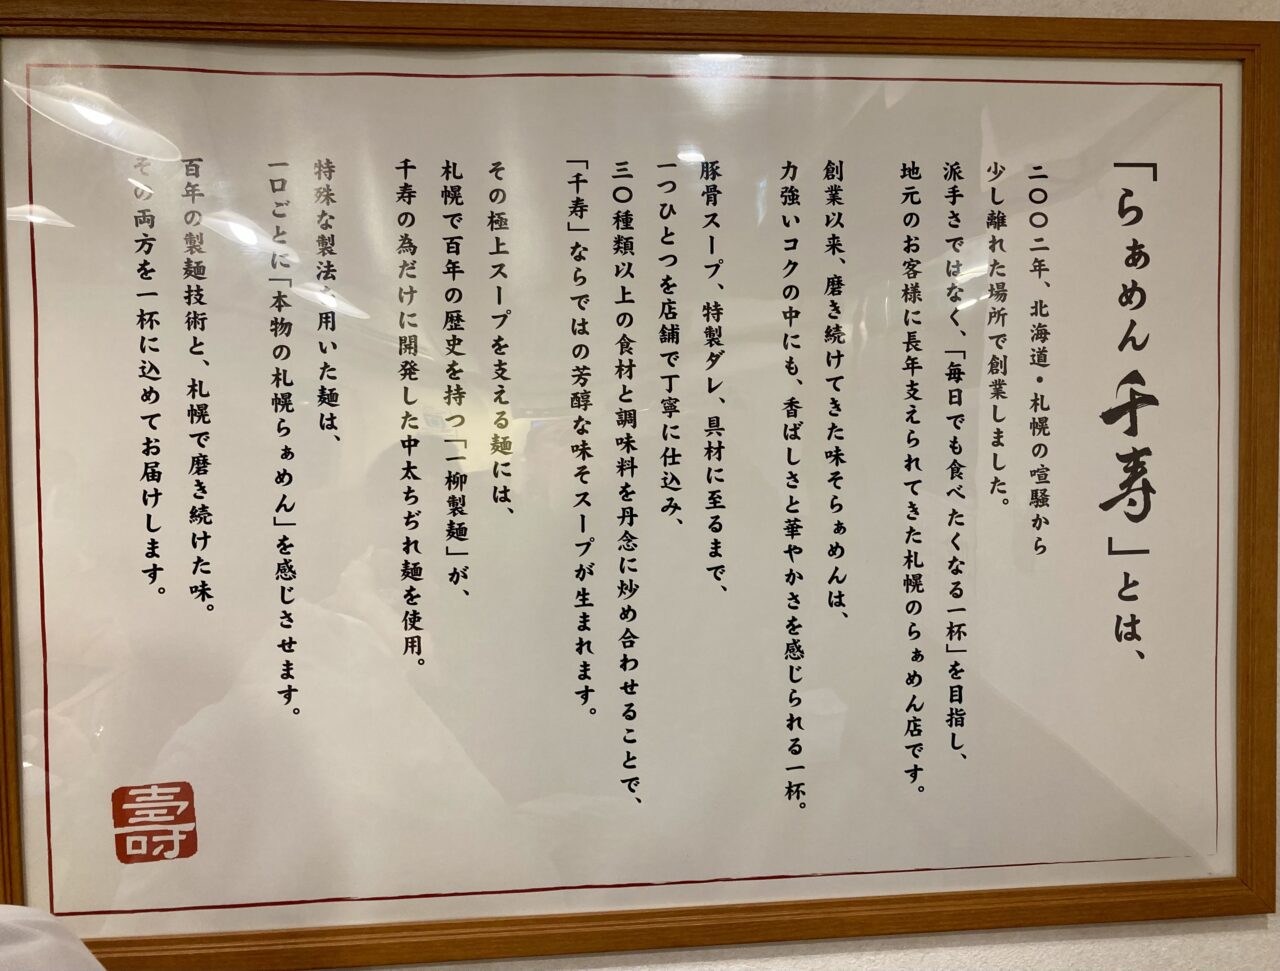 「らぁめん千寿」とは、
二〇〇二年、北海道・札幌の喧騒から
少し離れた場所で創業しました。
派手さではなく、「毎日でも食べたくなる一杯」を目指し、
地元のお客様に長年支えられてきた札幌のらぁめん店です。
創業以来、磨き続けてきた味そらぁめんは、
力強いコクの中にも、香ばしさと華やかさを感じられる一杯。
豚骨スープ、特製ダレ、具材に至るまで、
一つひとつを店舗で丁寧に仕込み、
三〇種類以上の食材と調味料を丹念に炒め合わせることで、
「千寿」ならではの芳醇な味そスープが生まれます。
その極上スープを支える麺には、
札幌で百年の歴史を持つ「一柳製麺」が、
千寿の為だけに開発した中太ちぢれ麺を使用。
特殊な製法を用いた麺は、
一口ごとに「本物の札幌らぁめん」を感じさせます。
百年の製麺技術と、札幌で磨き続けた味。
その両方を一杯に込めてお届けします。
壽